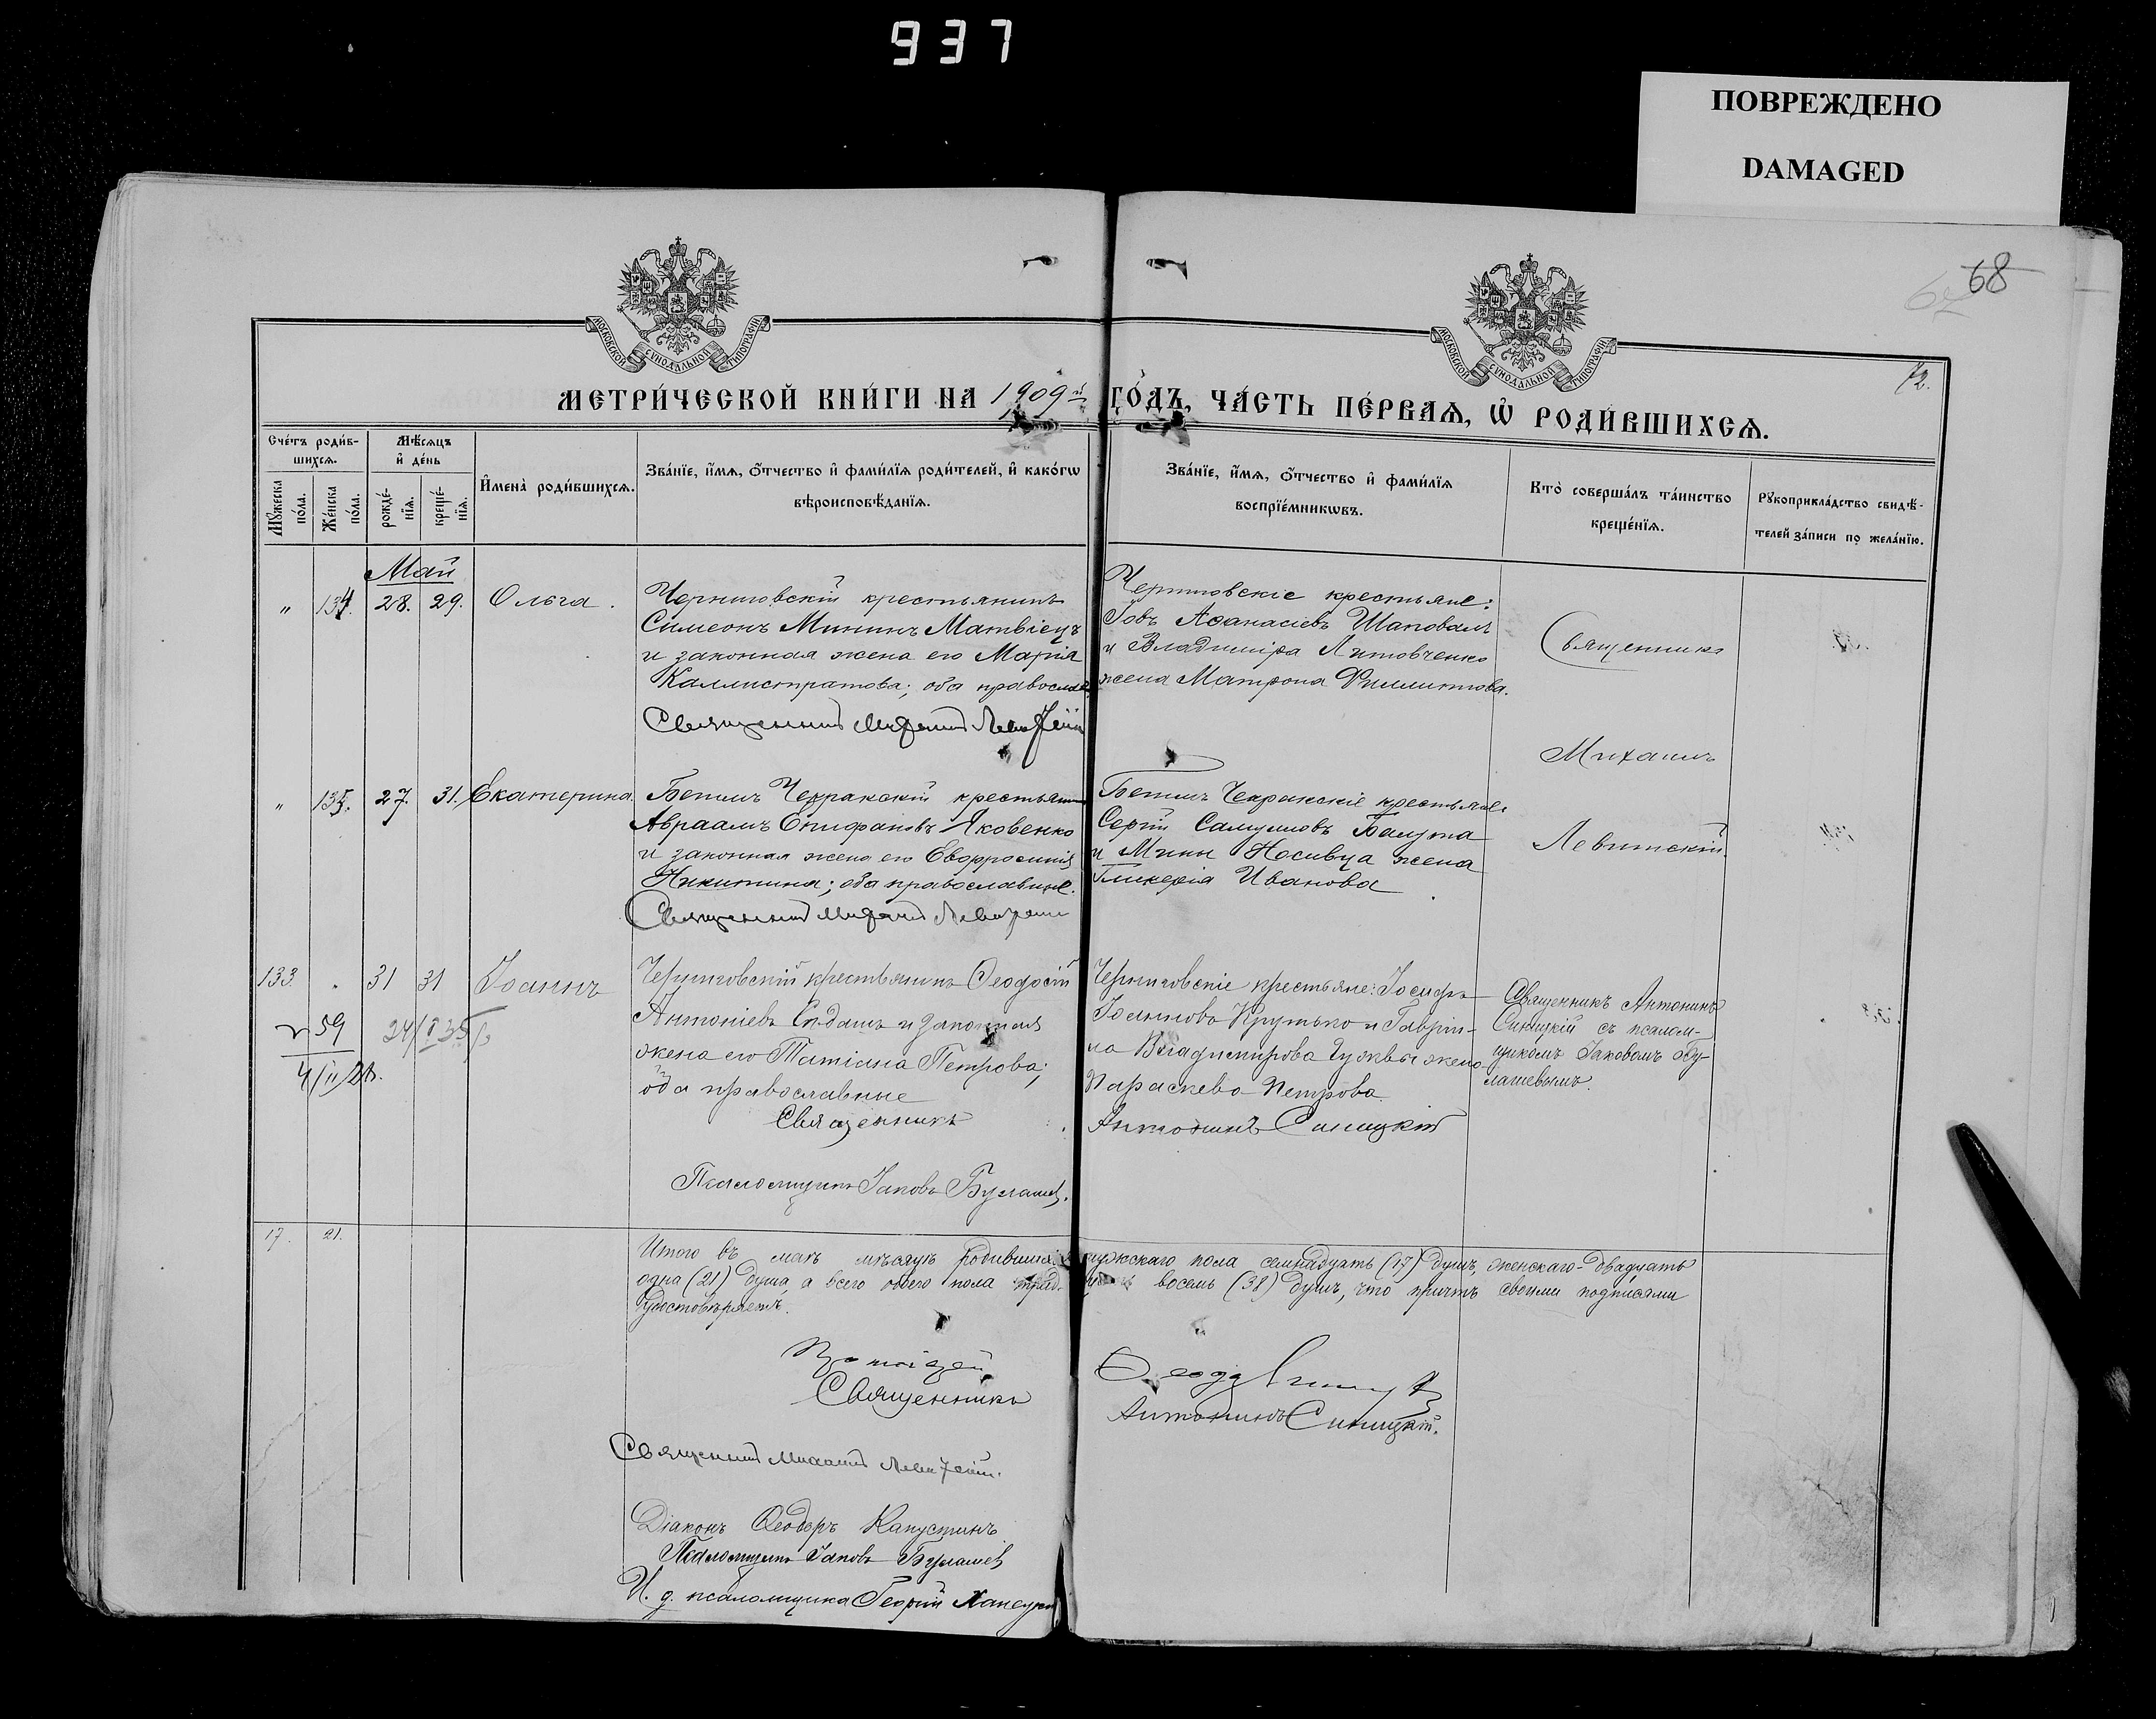 937
ПОВРЕЖДЕНО
DAMAGED
68
МОСКОВСКОЙ СѴНОДАЛЬНОЙ ТИПОГРАФІИ
МОСКОВСКОЙ СѴНОДАЛЬНОЙ ТИПОГРАФІИ
72.
МЕТРИ́ЧЕСКОЙ КНИ́ГИ НА 1909й ГО́ДЪ, ЧА́СТЬ ПЕ́РВАѦ, Ѽ РОДИ́ВШИХСѦ.
Сче́тъ роди́в-
шихсѧ.
Мꙋжеска по́ла.
Же́нска по́ла.
Мѣсѧцъ
и҆ де́нь
рожде́-
нїѧ.
креще́-
нїѧ.
И҆мена̀ роди́вшихсѧ.
Зва́нїе, и҆́мѧ, ѻ҆́тчество и҆ фами́лїѧ роди́телей, и҆ како́гѡ
вѣроисповѣ́данїѧ.
Зва́нїе, и҆́мѧ, ѻ҆́тчество и҆ фами́лїѧ
воспрїе́мникѡвъ.
Кто̀ соверша́лъ та́инство
креще́нїѧ.
Рꙋкоприкла́дство свидѣ́-
телей за́писи по жела́нїю.
Май
" 134. 28. 29. Ольга.
Черниговскій крестьянинъ
Симеонъ Мининъ Матвіецъ
и законная жена его Марія
Каллистратова; оба православ.
Священникъ Михаилъ Левитскій
Черниговскіе крестьяне:
Іовъ Аѳанасіевъ Шаповалъ
и Владиміра Литовченко
жена Матрона Филиппова.
Священникъ
Михаилъ
Левитскій.
" 135. 27. 31. Екатерина.
Авраамъ Епифановъ Яковенко
и законная жена его Евфросинія
Никитина; оба православные.
Священникъ Михаилъ Левитскій
Сергій Самуиловъ
и Мины Носивца жена
Гликерія Иванова
133. " 31 31 Іоаннъ
59
Черниговскій крестьянинъ Ѳеодосій
Антоніевъ и законная
жена его Татіана Петрова;
оба православные
Священникъ
Псаломщикъ Іаковъ Булашев.
Черниговскіе крестьяне: Іосифъ
Іоанновъ Крутько и Гаврі-
ла Владимирова Гужвы жена
Параскева Петрова.
Антонинъ Синицкій
Священникъ Антонинъ
Синицкій съ псалом-
щикомъ Іаковомъ Бу-
лашевымъ.
17. 21.
Итого въ маѣ мѣсяцѣ родившихся мужскаго пола семнадцать (17) душъ, женскаго - двадцать
одна (21) душа, а всего обоего пола тридцать восемь (38) душъ, что причтъ своими подписями
удостовѣряетъ.
Протоіерей
Священникъ
Антонинъ Синицкій.
Священникъ Михаилъ Левитскій.
Діаконъ Ѳеодоръ Капустинъ
Псаломщикъ Іаковъ Булашев
И. д. псаломщика Георгій